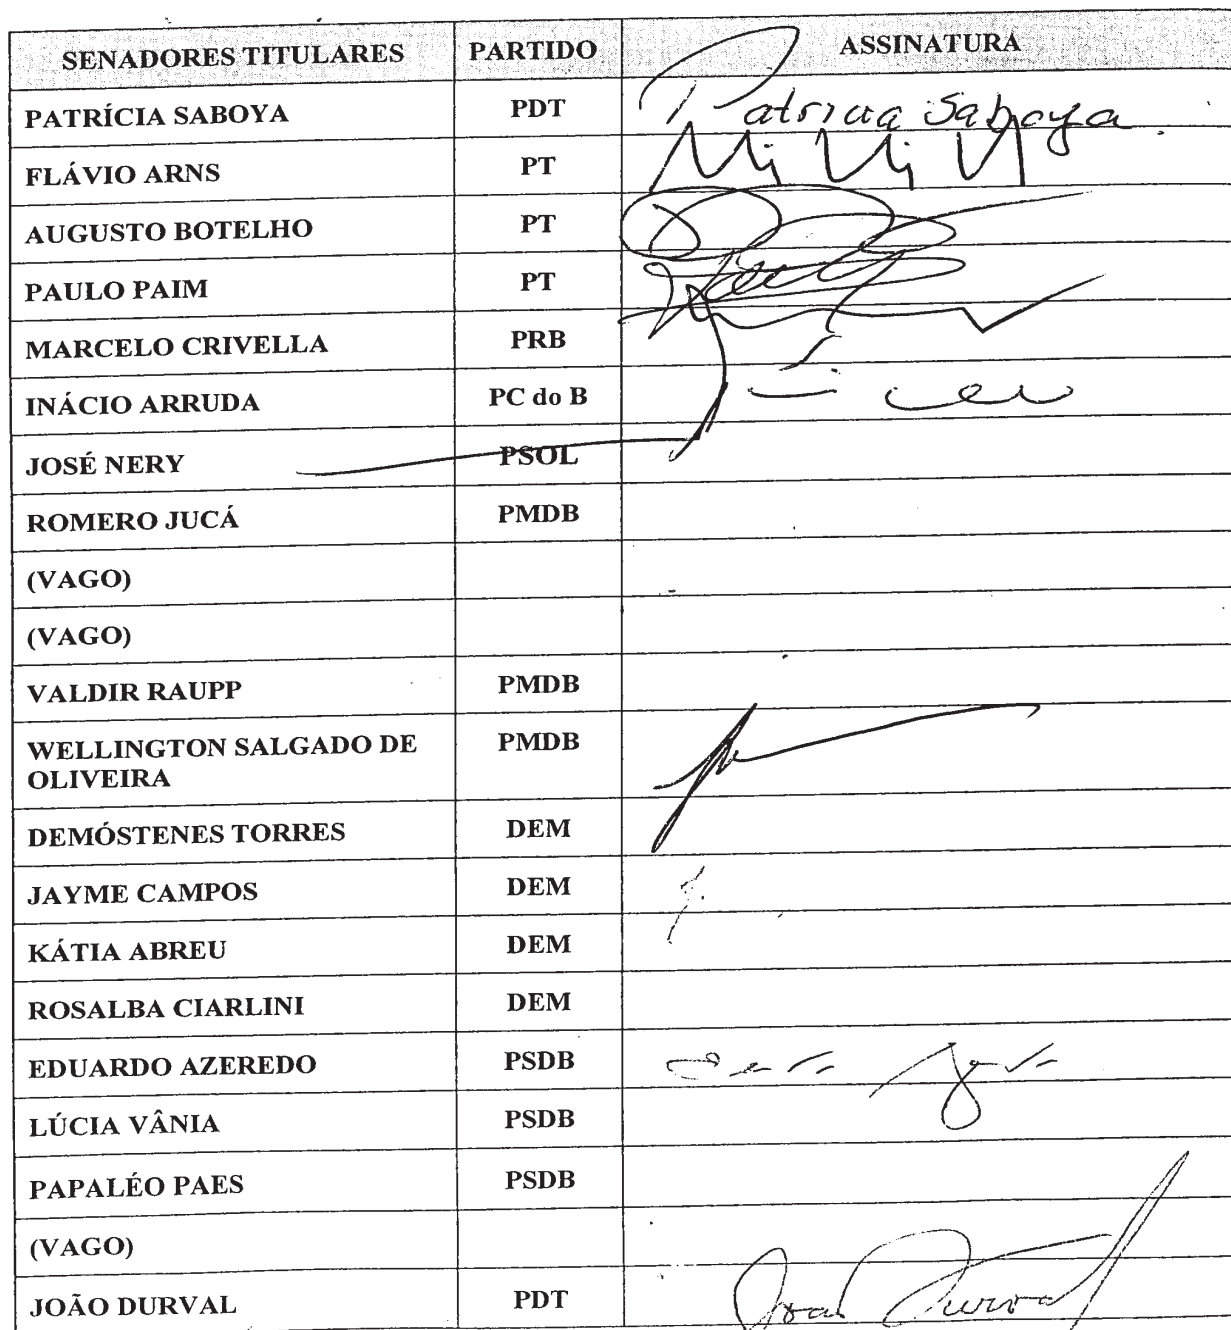 SENADORES TITULARES PARTIDO ASSINATURA
PATRÍCIA SABOYA PDT Patricia Saboya
FLÁVIO ARNS PT
AUGUSTO BOTELHO PT
PAULO PAIM PT
MARCELO CRIVELLA PRB
INÁCIO ARRUDA PC do B
JOSÉ NERY PSOL
ROMERO JUCÁ PMDB
(VAGO)
(VAGO)
VALDIR RAUPP PMDB
WELLINGTON SALGADO DE PMDB
OLIVEIRA
DEMÓSTENES TORRES DEM
JAYME CAMPOS DEM
KÁTIA ABREU DEM
ROSALBA CIARLINI DEM
EDUARDO AZEREDO PSDB
LÚCIA VÂNIA PSDB
PAPALÉO PAES PSDB
(VAGO)
JOÃO DURVAL PDT João Durval